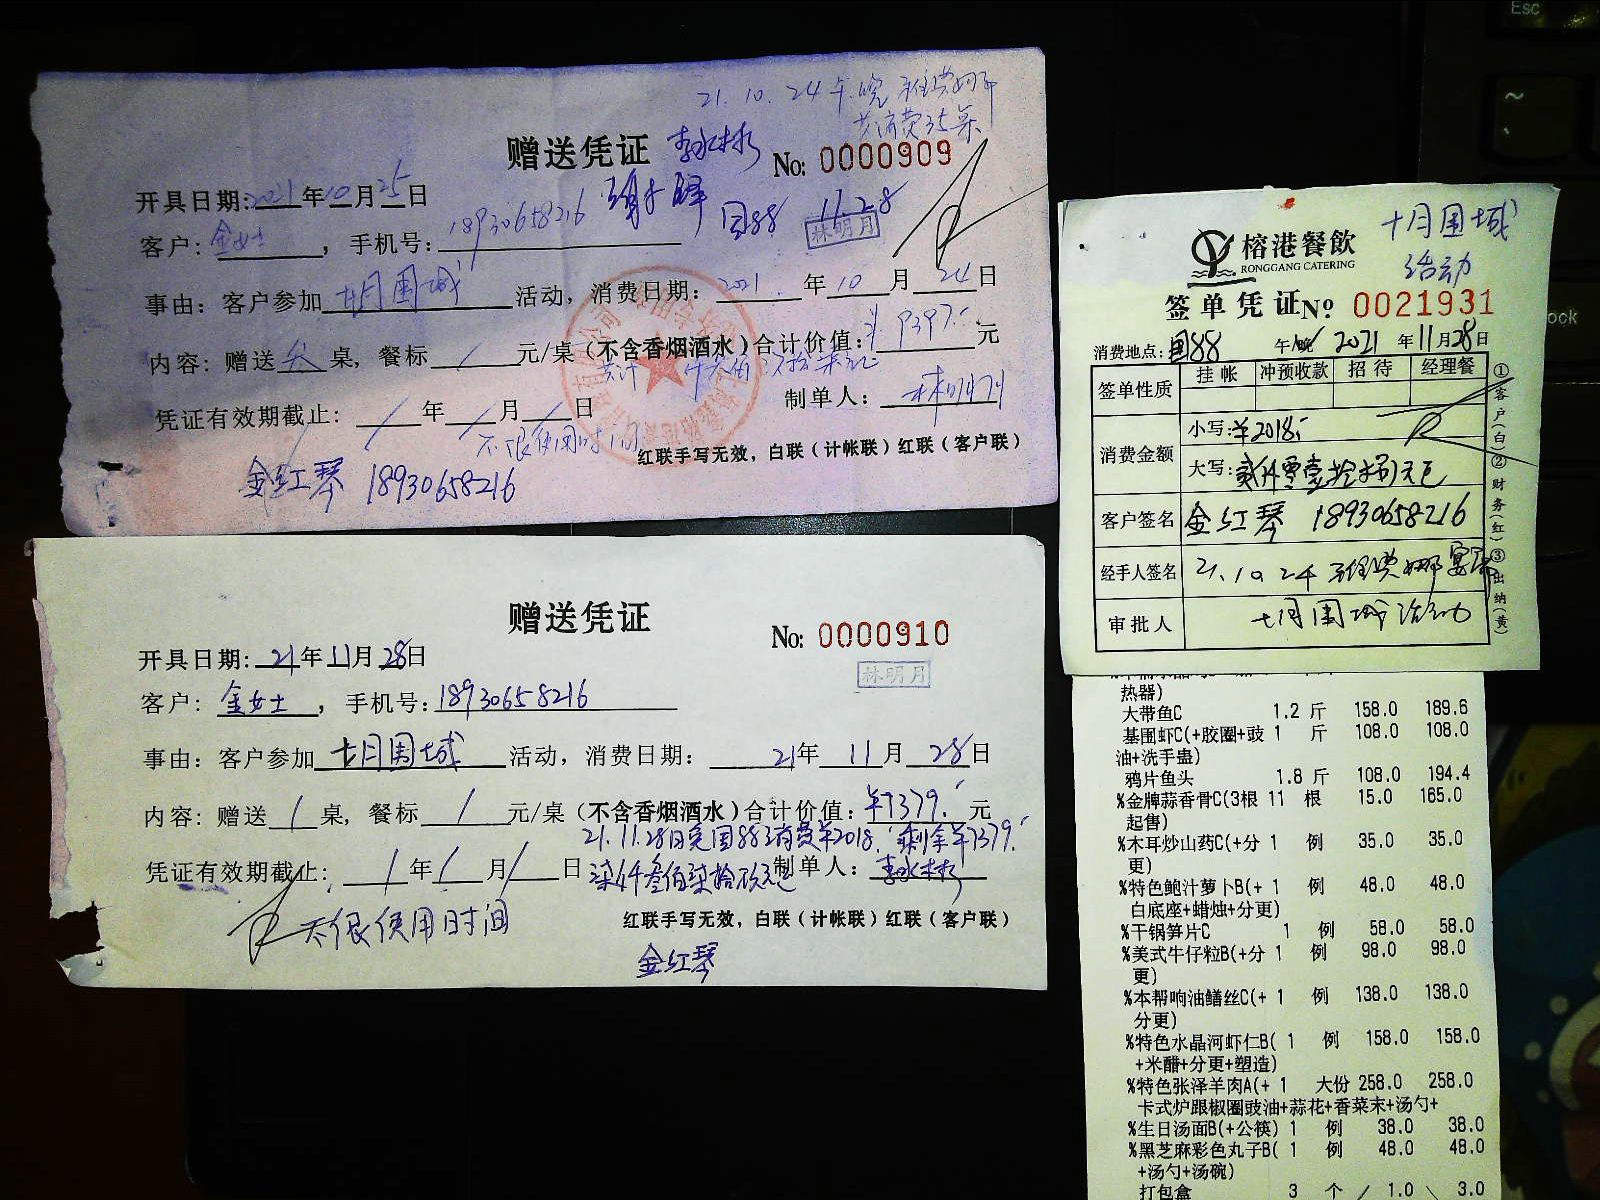 21.10.24午.晚
赠送凭证 李冰彬
No: 0000909
开具日期:2021年10月25日
18930658216
国88 11.28
林明月
客户: 金女士，手机号:
事由：客户参加 七月围城 活动，消费日期: 2021 年 10 月 24 日
内容：赠送 桌，餐标 / 元/桌（不含香烟酒水）合计价值: ¥9397.- 元
凭证有效期截止: / 年 / 月 / 日
制单人: 林明月
不限使用时间
红联手写无效，白联（计帐联）红联（客户联）
金红琴 18930658216
赠送凭证
No: 0000910
开具日期: 21年11月28日
林明月
客户: 金女士，手机号: 18930658216
事由：客户参加 七月围城 活动，消费日期: 21年 11 月 28 日
内容：赠送 / 桌，餐标 / 元/桌（不含香烟酒水）合计价值: ¥7379.- 元
21.11.28日晚国88消费¥2018.- 剩余¥7379.-
凭证有效期截止: / 年 / 月 / 日 柒仟叁佰柒拾玖元正 制单人: 李冰彬
不限使用时间
红联手写无效，白联（计帐联）红联（客户联）
金红琴
十月围城
活动
榕港餐飲
RONGGANG CATERING
签单凭证 No 0021931
消费地点: 国88 午/晚 2021 年 11月28日
签单性质 挂帐 冲预收款 招待 经理餐
消费金额 小写: ¥2018.-
大写: 贰仟零壹拾捌元正
客户签名 金红琴 18930658216
经手人签名 21.10.24
审批人 七月围城活动
①客户(白)②财务(红)③出纳(黄)
热器)
大带鱼C 1.2 斤 158.0 189.6
基围虾C(+胶圈+豉 1 斤 108.0 108.0
油+洗手蛊)
鸦片鱼头 1.8 斤 108.0 194.4
%金牌蒜香骨C(3根 11 根 15.0 165.0
起售)
%木耳炒山药C(+分 1 例 35.0 35.0
更)
%特色鲍汁萝卜B(+ 1 例 48.0 48.0
白底座+蜡烛+分更)
%干锅笋片C 1 例 58.0 58.0
%美式牛仔粒B(+分 1 例 98.0 98.0
更)
%本帮响油鳝丝C(+ 1 例 138.0 138.0
分更)
%特色水晶河虾仁B( 1 例 158.0 158.0
+米醋+分更+塑造)
%特色张泽羊肉A(+ 1 大份 258.0 258.0
卡式炉跟椒圈豉油+蒜花+香菜末+汤勺+
%生日汤面B(+公筷) 1 例 38.0 38.0
%黑芝麻彩色丸子B( 1 例 48.0 48.0
+汤勺+汤碗)
打包盒 3 个 1.0 3.0
Esc
~
ock